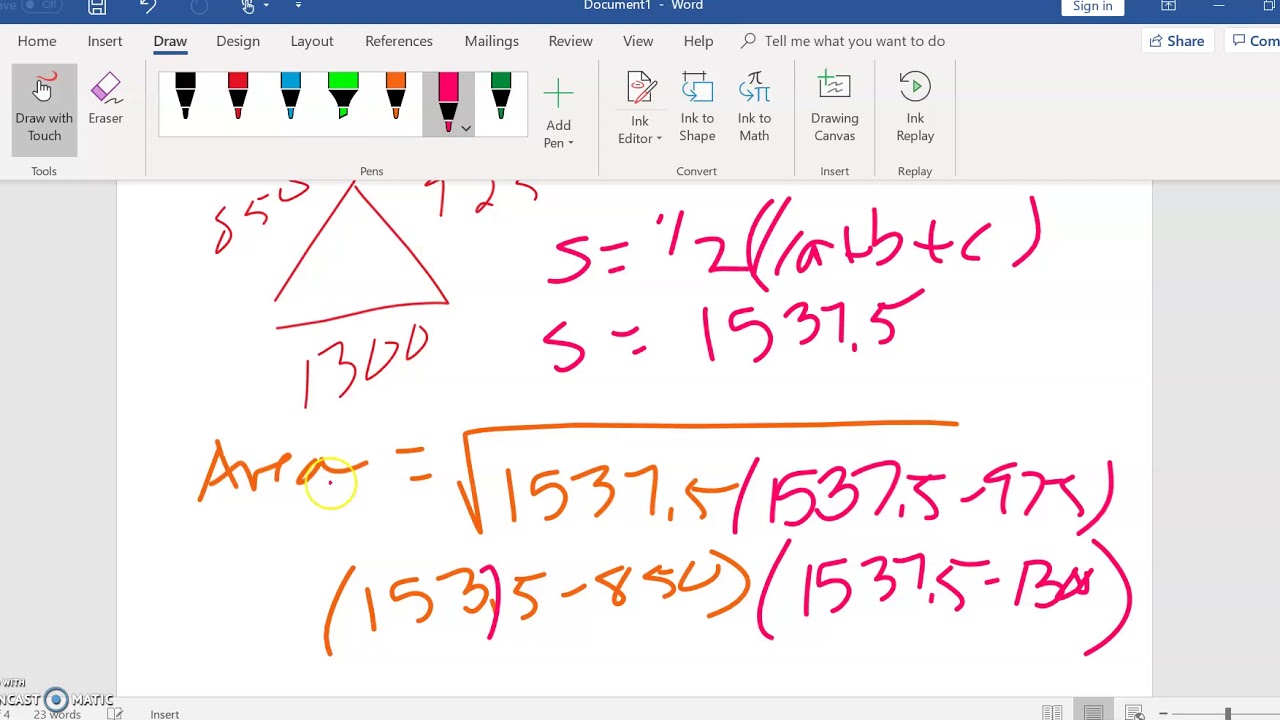 Document1 - Word
Sign in
Home Insert Draw Design Layout References Mailings Review View Help Tell me what you want to do Share
Draw with Touch
Eraser
Add Pen
Ink Editor
Ink to Shape
Ink to Math
Drawing Canvas
Ink Replay
Tools Pens Convert Insert Replay
850
925
1300
s = 1/2((a+b+c)
s = 1537.5
Area = √1537.5(1537.5-975)
(153)5-850)(1537.5-1300)
WITH
MATIC
23 words Insert